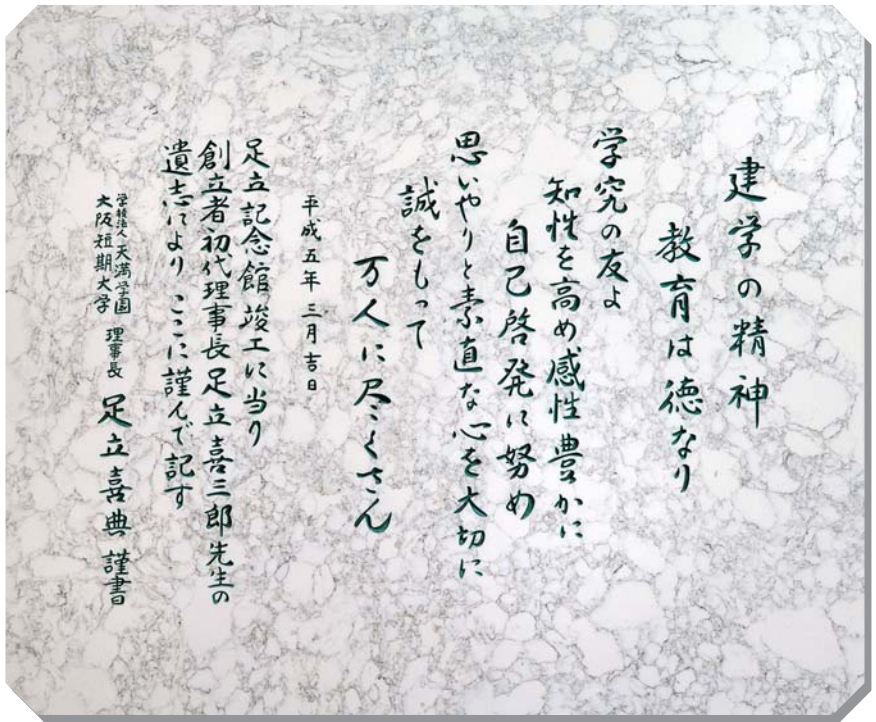 建学の精神
教育は徳なり
学究の友よ
知性を高め感性豊かに
自己啓発に努め
思いやりと素直な心を大切に
誠をもって
万人に尽くさん
平成五年三月吉日
足立記念館竣工に当り
創立者初代理事長足立喜三郎先生の
遺志により ここに謹んで記す
学校法人天満学園
大阪短期大学
理事長 足立喜典 謹書